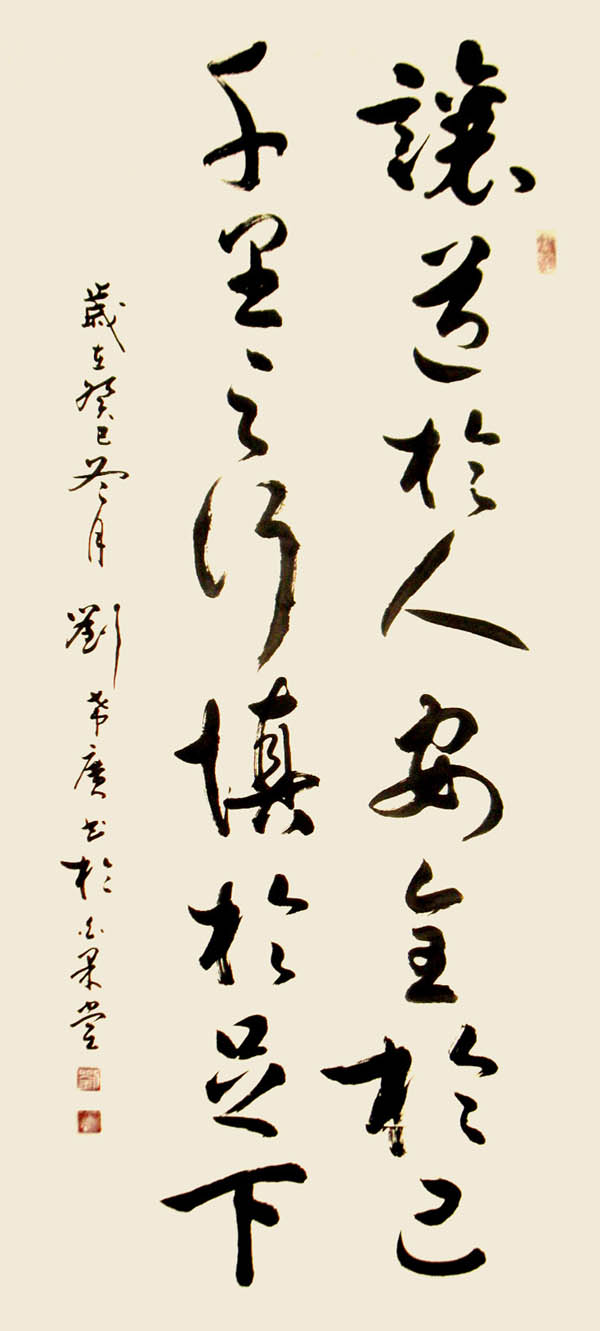 讓道於人安全於己
千里之行慎於足下
歲在癸巳冬月 劉希廣書於白果堂